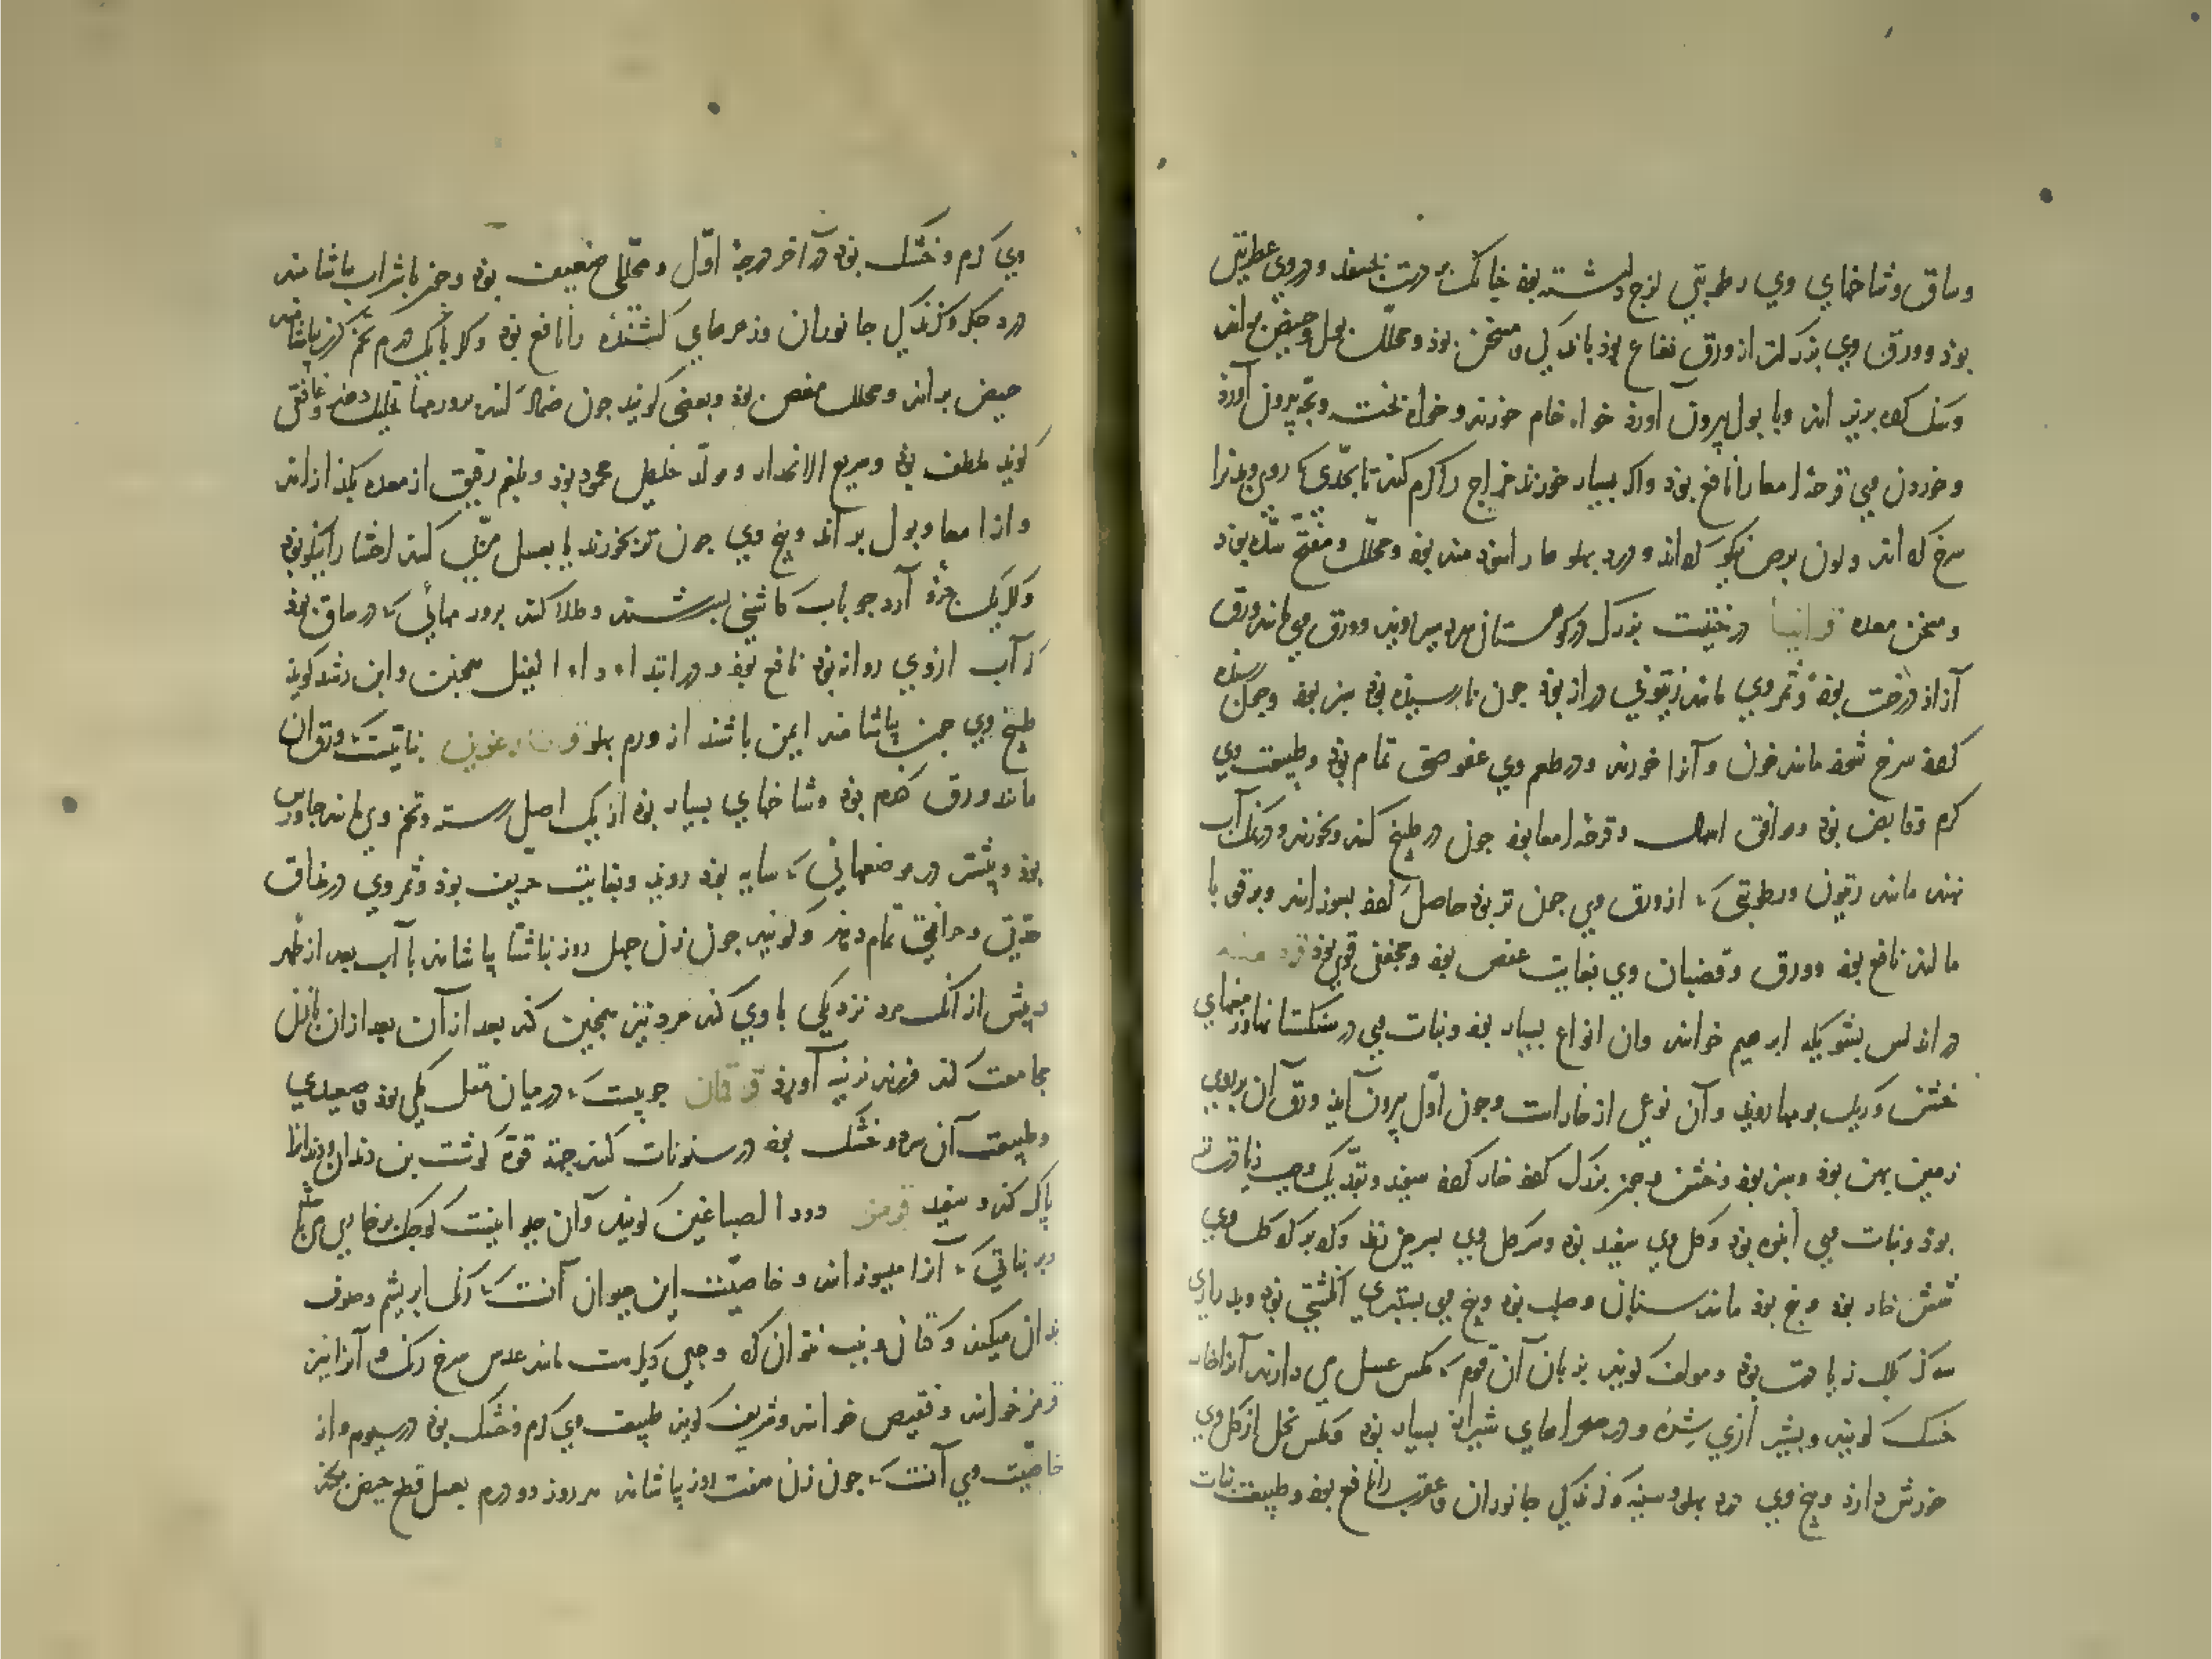 وساق و شاخهای وی رطوبتی لزج داشته بود چنانک بر دست بچسفد و در وی عطریتی
بود و ورق وی بزرگتر از ورق نعناع بود باندکی و مسخن بود و محلل بول و حیض براند
و سنک کرده بریزاند و با بول بیرون آورد خواه خام خورند و خواه پخته و بچه بیرون آورد
و خوردن وی قرحهٔ امعا را نافع بود و اکر بسیار خورند مزاج را کرم کند تا بحدی که روی ویرا
سرخ کرداند و لون برص نیکو کرداند و درد پهلوها را سودمند بود و محلل و مفتح سده بود
و مسخن معده قرانیا درختیست بزرک در کوهستان سردسیر روید و ورق وی مانند ورق
آزاد درخت بود و ثمر وی مانند زیتونی دراز بود چون نارسیده بود سبز بود و چون رسیده
کردد سرخ شود مانند خون و آنرا خورند و در طعم وی عفوصتی تمام بود و طبیعت وی
کرم و قابض بود و موافق اسهال و قرحهٔ امعا بود چون در طبیخ کنند و بخورند و در نمک آب
نهند مانند زیتون و رطوبتی که از ورق وی چون تر بود حاصل کردد بسوزانند و بر قوبا
مالند نافع بود و ورق و قضبان وی بغایت عفص بود و مجفف قوی بود قرصعنه
در اندلس بشویکه ابرهیم خوانند و آن انواع بسیار بود و نبات وی در سنکستانها و زمینهای
خشن و ریک بومها روید و آن نوعی از خار است و چون اول بیرون آید ورق آن بر روی
زمین پهن بود و سبز بود و خشن و چون بزرک کردد خار کردد سفید و بقد یک وجب زیادت
بود و نبات وی انبوه بود و کل وی سفید بود و سر کل وی بسرخی زند و کرد بر کرد کل وی
شش خار بود و پنج بود مانند سنان و صلب بود و بیخ وی بستبری انکشتی بود و بدرازی
سه کز بلک زیادت بود و مولف کوید بزبان آن قوم که مکس عسل می دارند آنرا خار
خسک کویند و بشیرازی شنزه و در صحراهای شیراز بسیار بود و مکس نحل از کل وی
خورش دارد و بیخ وی درد پهلو و سینه و کزندکی جانوران و عقرب را نافع بود و طبیعت نبات
وی کرم و خشک بود در آخر درجهٔ اول و محللی ضعیف بود و چون با شراب بیاشامند
درد جکر و کزندکی جانوران و زهرهای کشنده را نافع بود و کر با یک درم تخم کزر بیاشامند
حیض براند و محلل مغص بود و بعضی کویند چون ضماد کنند بر ورمها تحلیل دهد و غافقی
کوید ملطف بود و سریع الانحدار و مولد خلطی محمود بود و بلغم رقیق از معده بکدازاند
و از امعا و بول براند و بیخ وی چون تر بخورند یا بعسل مربی کنند احشا را نیکو بود
و کر یک جزو آرد جو بآب کاشنی بسرشند و طلا کنند بر ورمهائی که در ساق بود
که آب از وی روانه بود نافع بود و در ابتداء داء الفیل همچنین و ابن رشد کوید
طبیخ وی چون بیاشامند ایمن باشند از ورم پهلو نباتیست که ورق آن
مانند ورق کندم بود و شاخهای بسیار بود از یک اصل رسته و تخم وی مانند جاورس
بود و بیشتر در موضعهائی که سایه بود روید و بغایت حریف بود و ثمر وی در مذاق
حدتی و حرافتی تمام دهد و کویند چون زن چهل روز ناشتا بیاشاماند با آب بعد از طهر
و پیش از آنک مرد نزدیکی با وی کند مرد نیز همچنین کند بعد از آن بعد از آن با زن
مجامعت کند فرزند نرینه آورد قرقمان چوبیست که در میان مقل مکی بود و صعیدی
و طبیعت آن سرد و خشک بود در سنونات کنند جهة قوة کوشت بن دندان و دندانها
پاک کند و سفید قرمز دود الصباغین کویند و آن حیوانیست کوچک بر خار می باشد
و بر نباتی که آنرا میسوزانند و خاصیت این حیوان آنست که رنک ابریشم و صوف
بدان میکنند و کتان و پنبه نتوان کرد و حبی دیکر هست مانند عدس سرخ رنک و آنرا نیز
قرمز خوانند و قعیص خوانند و شریف کوید طبیعت وی کرم و خشک بود در سیوم و از
خاصیت وی آنست که چون زن هفت روز بیاشاماند هر روز دو درم بعسل قطع حیض بکند